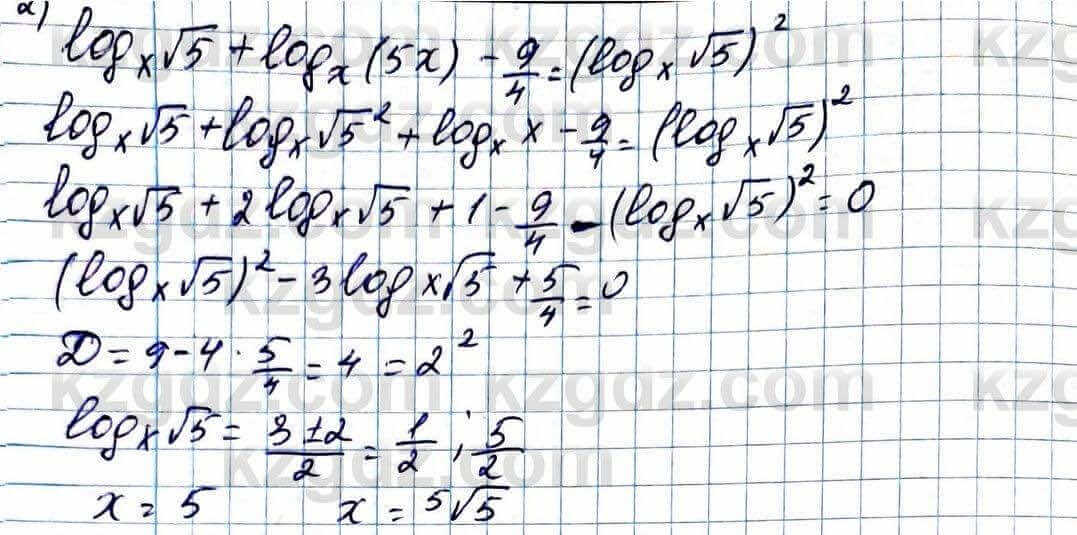 а)
log_x √5 + log_x (5x) - 9/4 = (log_x √5)²
log_x √5 + log_x √5² + log_x x - 9/4 = (log_x √5)²
log_x √5 + 2 log_x √5 + 1 - 9/4 - (log_x √5)² = 0
(log_x √5)² - 3 log x √5 + 5/4 = 0
D = 9 - 4 · 5/4 = 4 = 2²
log_x √5 = 3 ± 2 / 2 = 1/2 ; 5/2
x = 5 x = ⁵√5
kzgdz.com